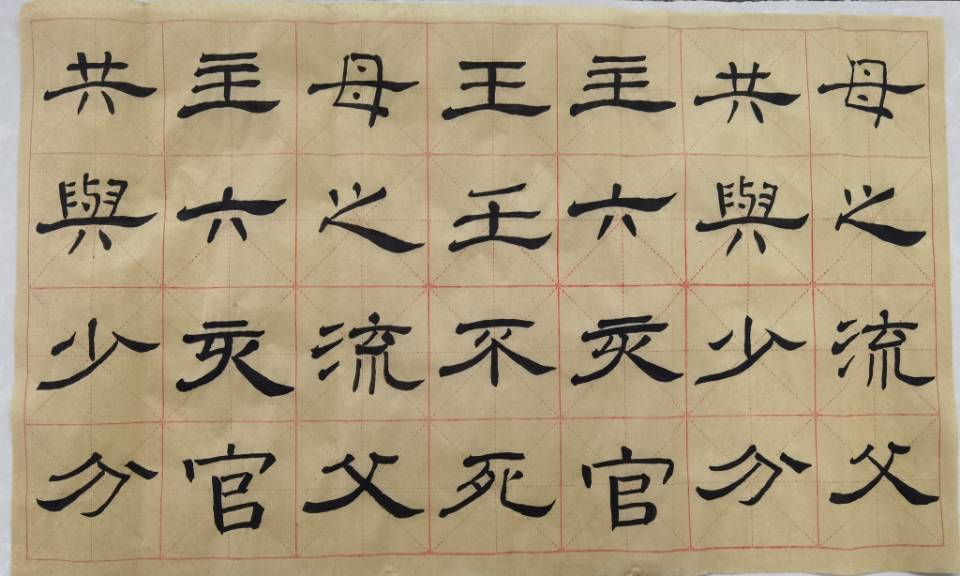 母之流父
共與少分
主六亥官
王壬不死
母之流父
主六亥官
共與少分